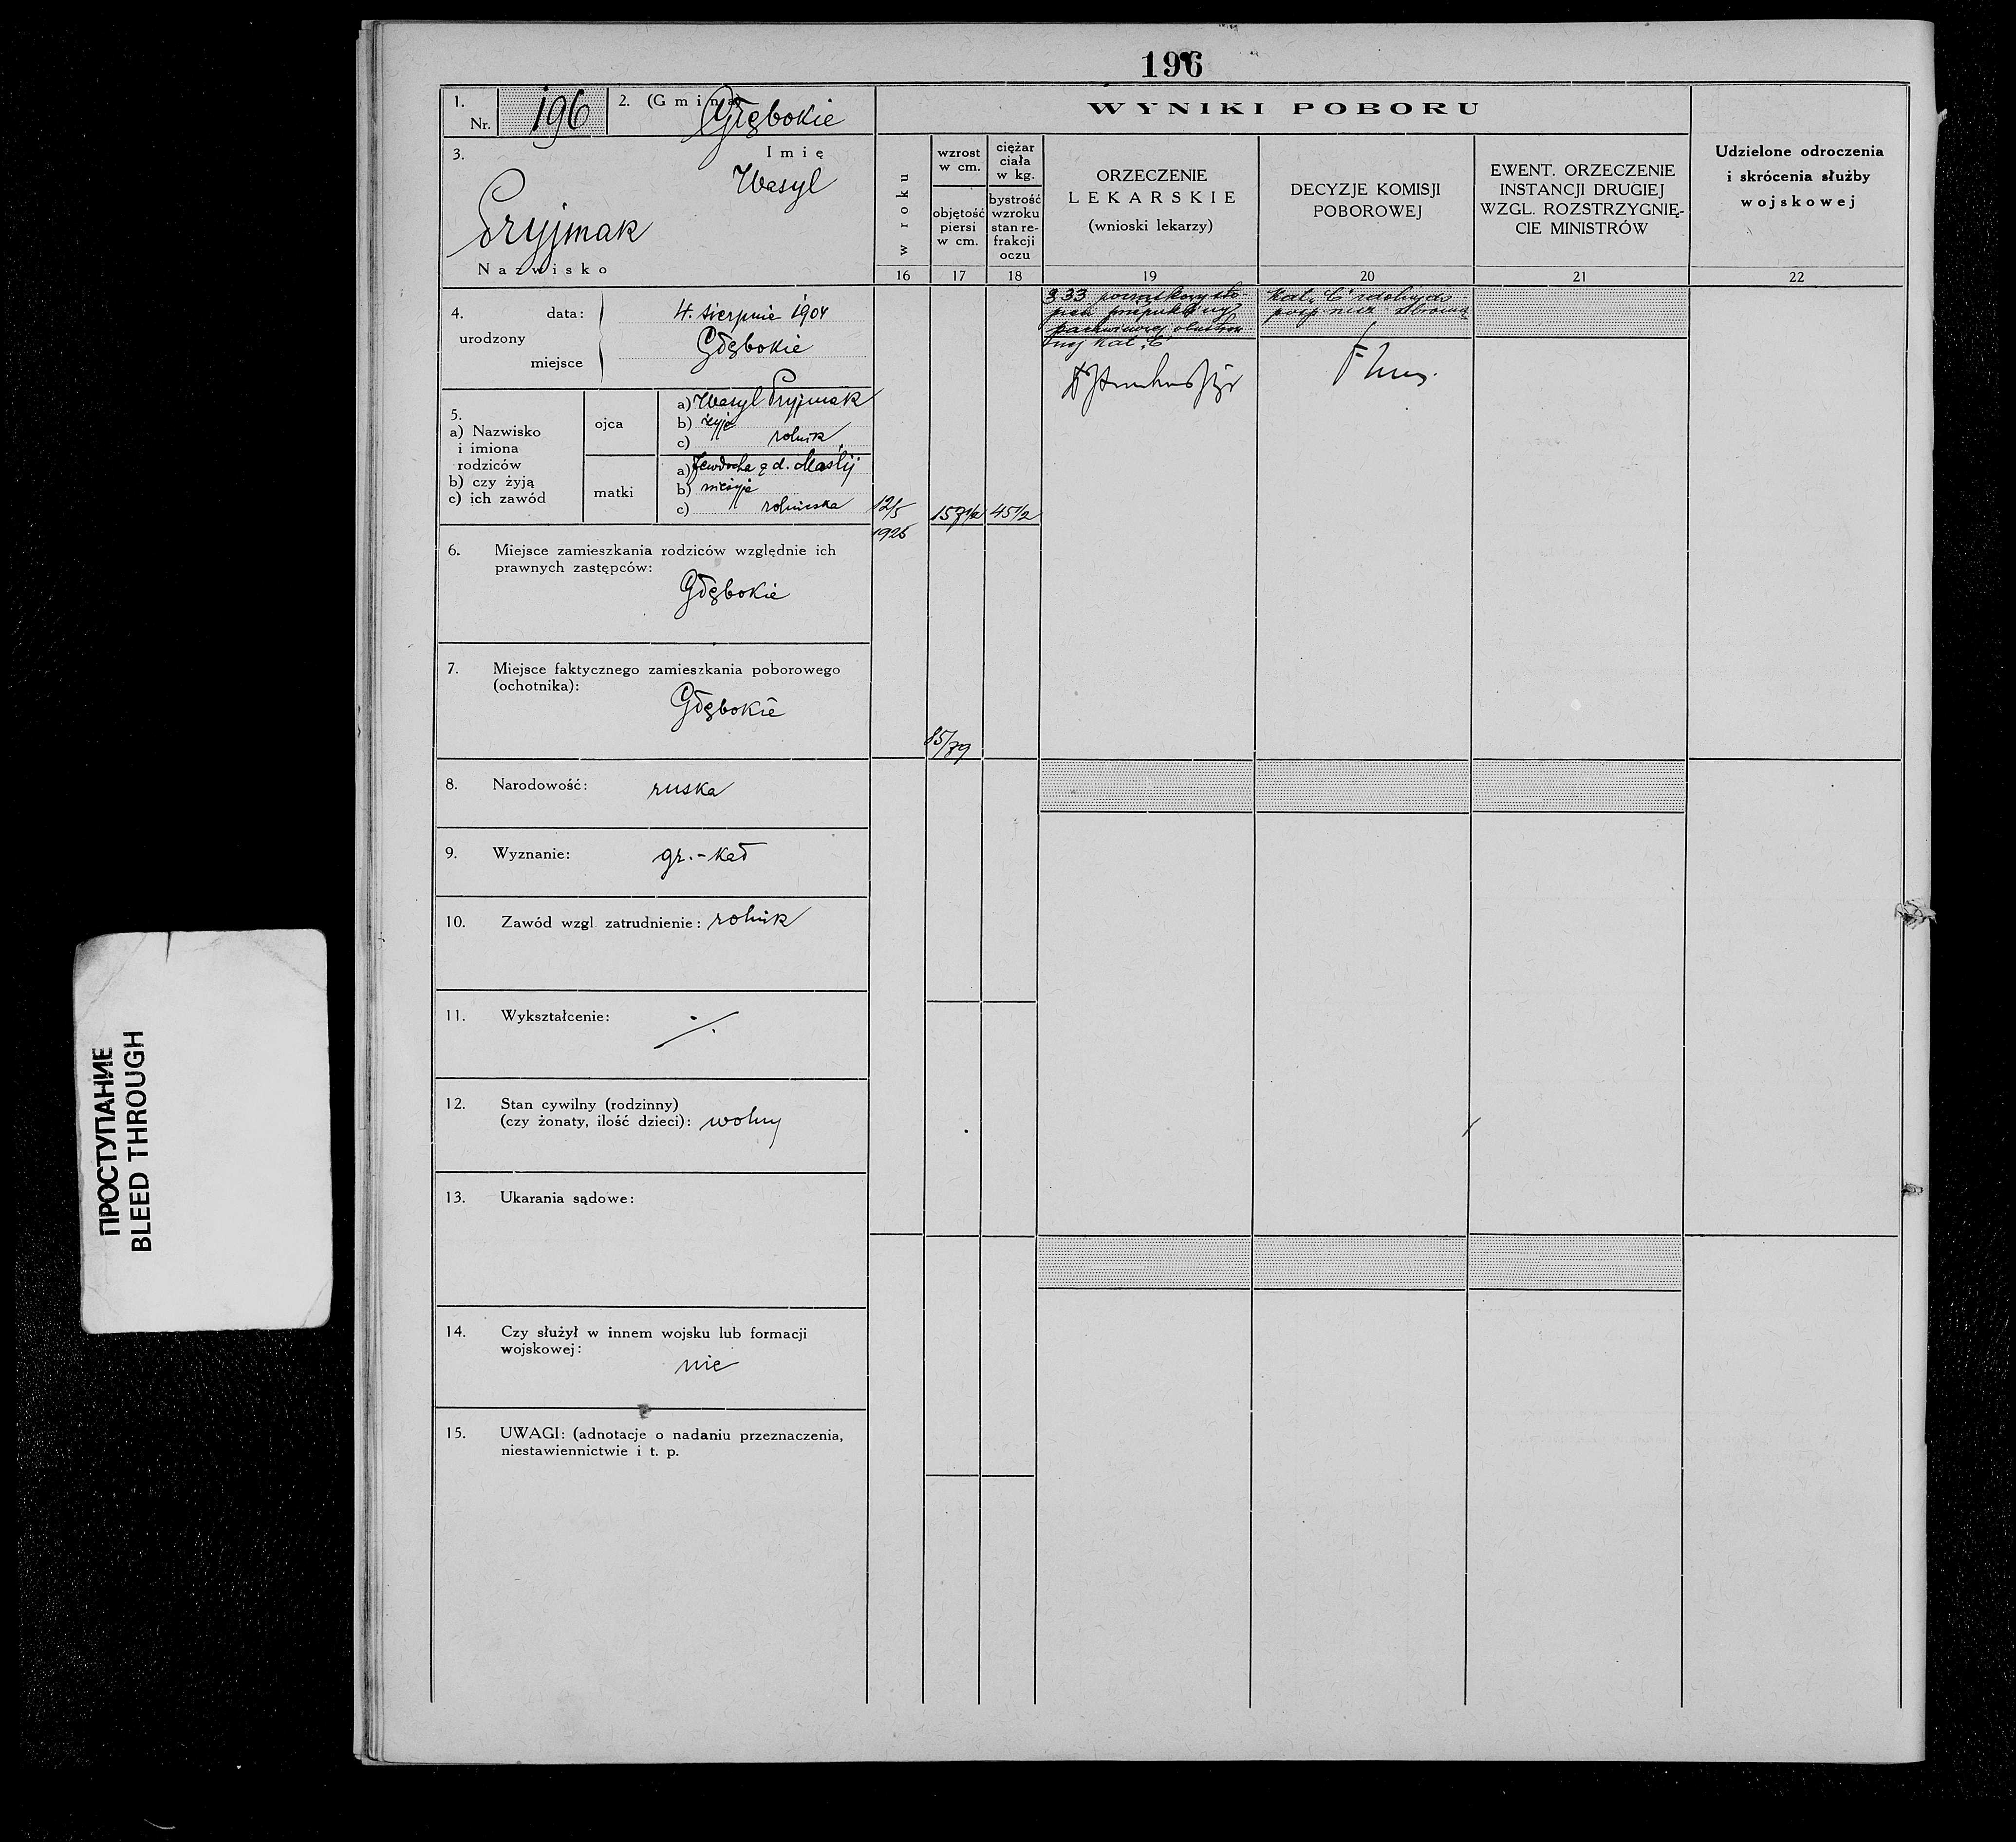 196
1.
Nr. 196
2. (Gmina) Głębokie
3.
Imię
Wasyl
Pryjmak
Nazwisko
WYNIKI POBORU
w roku
wzrost
w cm.
objętość
piersi
w cm.
ciężar
ciała
w kg.
bystrość
wzroku
stan re-
frakcji
oczu
ORZECZENIE
LEKARSKIE
(wnioski lekarzy)
DECYZJE KOMISJI
POBOROWEJ
EWENT. ORZECZENIE
INSTANCJI DRUGIEJ
WZGL. ROZSTRZYGNIĘ-
CIE MINISTRÓW
Udzielone odroczenia
i skrócenia służby
wojskowej
16 17 18 19 20 21 22
4.
urodzony
data: 4. sierpnia 1904
miejsce Głębokie
5.
a) Nazwisko
i imiona
rodziców
b) czy żyją
c) ich zawód
ojca
a) Wasyl Pryjmak
b) żyje
c) rolnik
matki
a) Jewdocha z d. Maślij
b) nieżyje
c) rolniczka
12/5
1925
157 1/2
45 1/2
85/79
§ 33
kat. "C"
kat. "C" zdolny do
posp. rusz. z bronią
6. Miejsce zamieszkania rodziców względnie ich
prawnych zastępców:
Głębokie
7. Miejsce faktycznego zamieszkania poborowego
(ochotnika):
Głębokie
8. Narodowość: ruska
9. Wyznanie: gr.-kat
10. Zawód wzgl. zatrudnienie: rolnik
11. Wykształcenie: ·/.
12. Stan cywilny (rodzinny)
(czy żonaty, ilość dzieci): wolny
13. Ukarania sądowe:
14. Czy służył w innem wojsku lub formacji
wojskowej:
nie
15. UWAGI: (adnotacje o nadaniu przeznaczenia,
niestawiennictwie i t. p.
ПРОСТУПАНИЕ
BLEED THROUGH